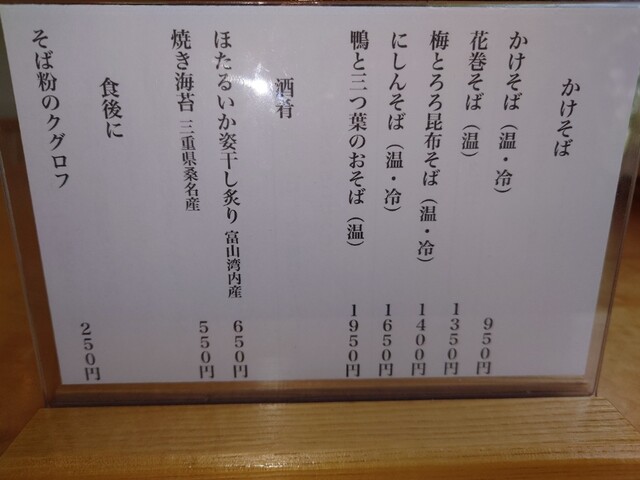 かけそば
かけそば（温・冷） 950円
花巻そば（温） 1350円
梅とろろ昆布そば（温・冷） 1400円
にしんそば（温・冷） 1650円
鴨と三つ葉のおそば（温） 1950円
酒肴
ほたるいか姿干し炙り 富山湾内産 650円
焼き海苔 三重県桑名産 550円
食後に
そば粉のクグロフ 250円